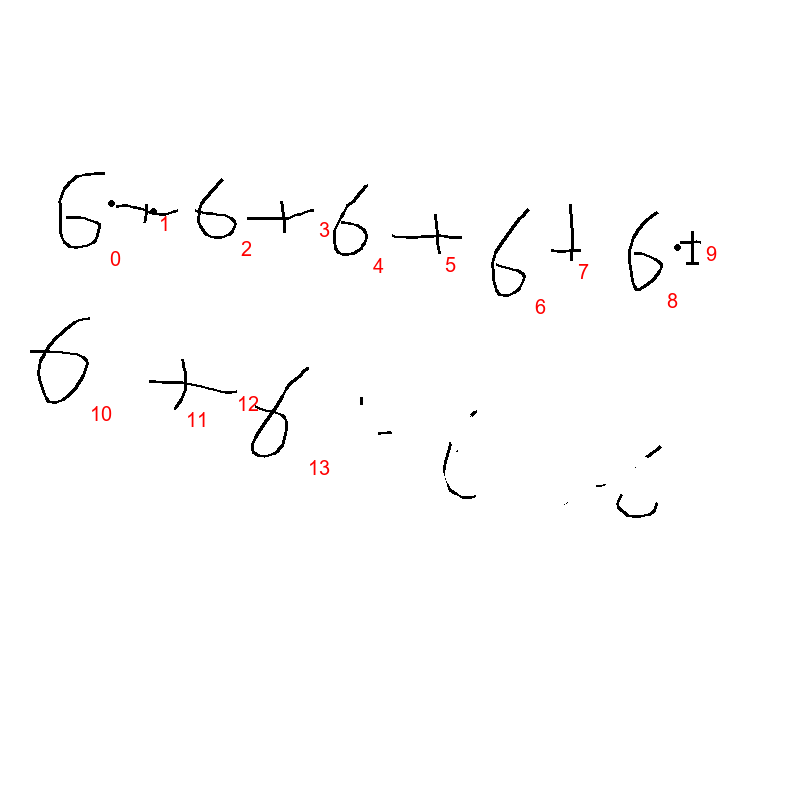 6 + 6 + 6 + 6 + 6 +
6 + 6
0 1 2 3 4 5 6 7 8 9
10 11 12 13